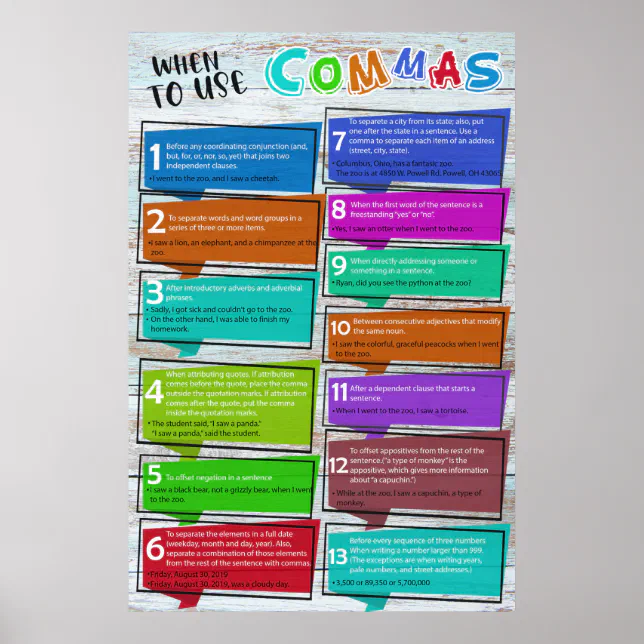 WHEN
TO USE
COMMAS
1
Before any coordinating conjunction (and,
but, for, or, nor, so, yet) that joins two
independent clauses.
• I went to the zoo, and I saw a cheetah.
2
To separate words and word groups in a
series of three or more items.
• I saw a lion, an elephant, and a chimpanzee at the
zoo.
3
After introductory adverbs and adverbial
phrases.
• Sadly, I got sick and couldn't go to the zoo.
• On the other hand, I was able to finish my
homework.
4
When attributing quotes. If attribution
comes before the quote, place the comma
outside the quotation marks. If attribution
comes after the quote, put the comma
inside the quotation marks.
• The student said, "I saw a panda."
"I saw a panda," said the student.
5
To offset negation in a sentence
• I saw a black bear, not a grizzly bear, when I went
to the zoo.
6
To separate the elements in a full date
(weekday, month and day, year). Also,
separate a combination of those elements
from the rest of the sentence with commas.
• Friday, August 30, 2019
• Friday, August 30, 2019, was a cloudy day.
7
To separate a city from its state; also, put
one after the state in a sentence. Use a
comma to separate each item of an address
(street, city, state).
• Columbus, Ohio, has a fantastic zoo.
The zoo is at 4850 W. Powell Rd, Powell, OH 43065
8
When the first word of the sentence is a
freestanding "yes" or "no".
• Yes, I saw an otter when I went to the zoo.
9
When directly addressing someone or
something in a sentence.
• Ryan, did you see the python at the zoo?
10
Between consecutive adjectives that modify
the same noun.
• I saw the colorful, graceful peacocks when I went
to the zoo.
11
After a dependent clause that starts a
sentence.
• When I went to the zoo, I saw a tortoise.
12
To offset appositives from the rest of the
sentence.("a type of monkey" is the
appositive, which gives more information
about "a capuchin.")
• While at the zoo, I saw a capuchin, a type of
monkey.
13
Before every sequence of three numbers
When writing a number larger than 999.
(The exceptions are when writing years,
pale numbers, and street addresses.)
• 3,500 or 89,350 or 5,700,000